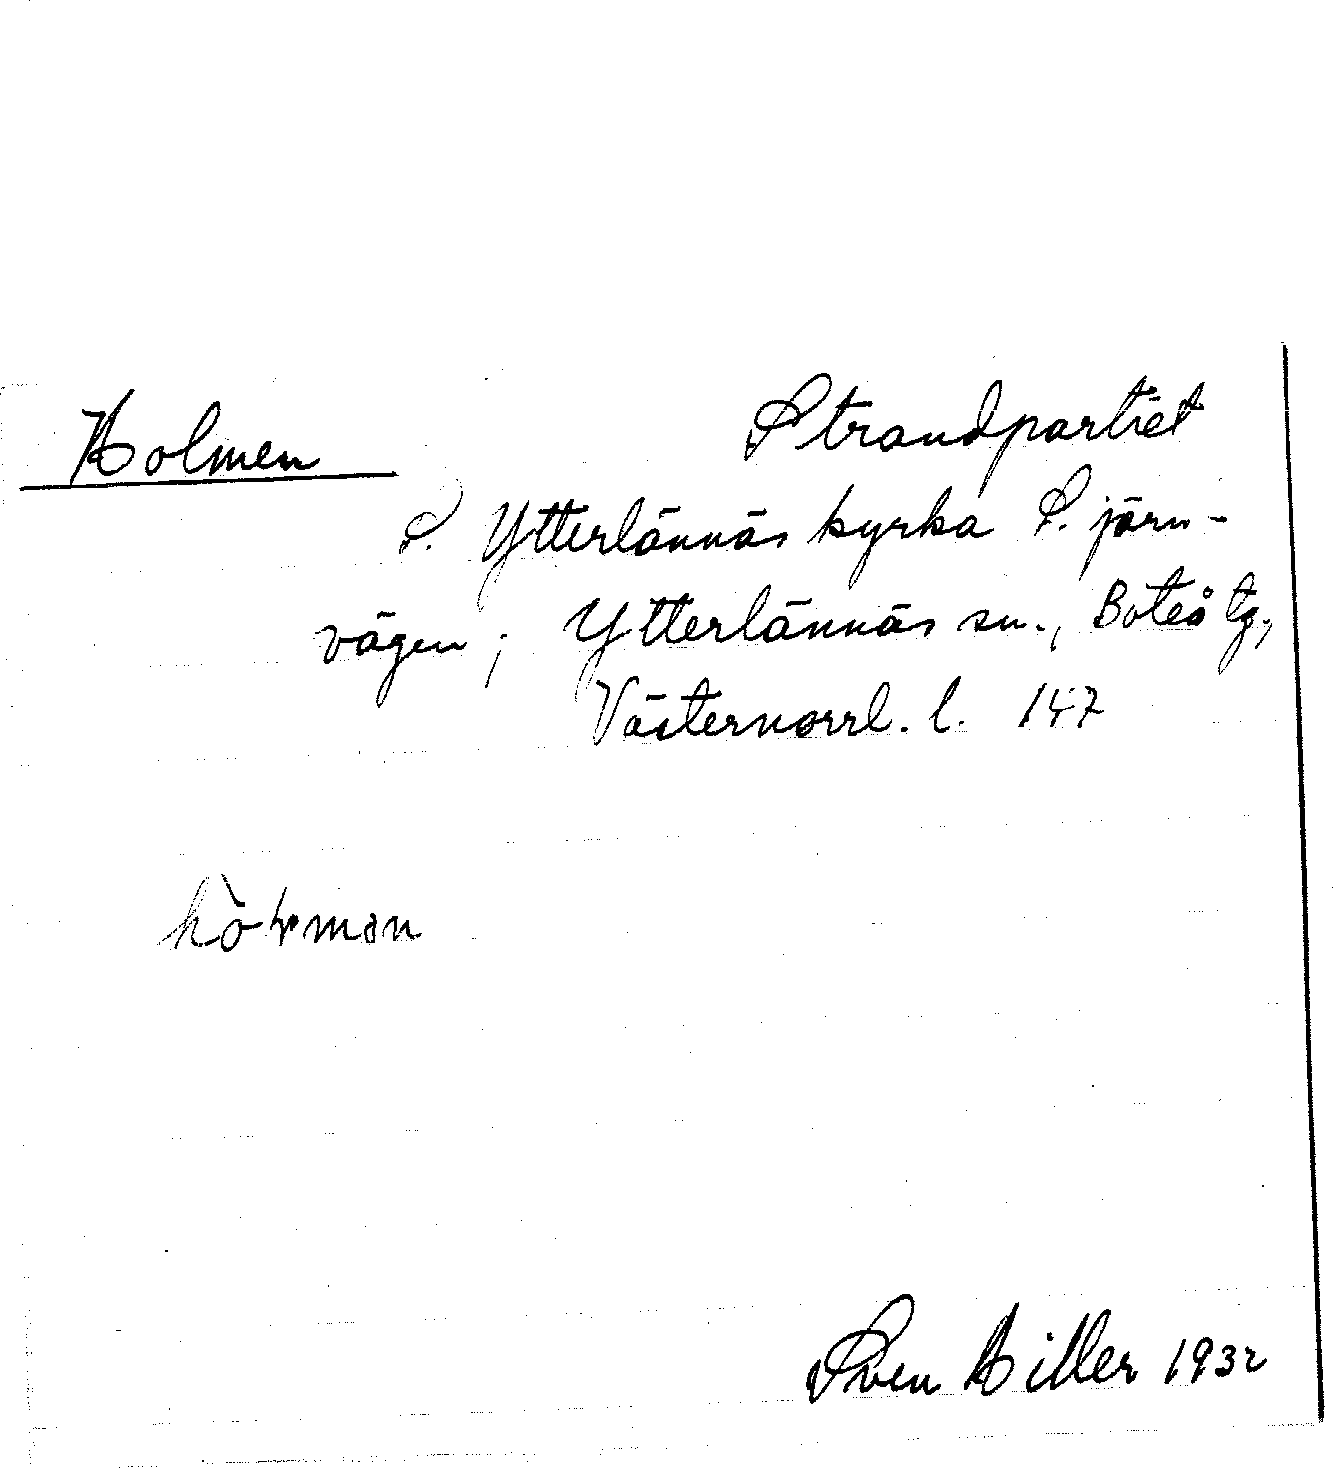 Holmen Strandpartiet
S. Ytterlännäs kyrka S. järn-
vägen; Ytterlännäs sn., Boteå tg.,
Västernorrl. l. 147
Sven Hiller 1932